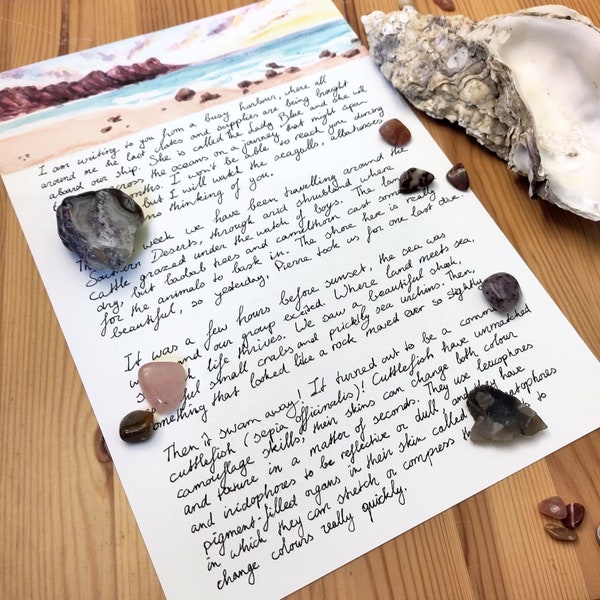 I am writing to you from a busy harbour, where all
around me the last crates and supplies are being brought
aboard our ship. She is called the Lady Blue and she will
across the oceans on a journey that might span
months. I won't be able to reach you during
but I will watch the seagulls, albatrosses
thinking of you.
week we have been travelling around the
Southern Deserts, through arid shrubland where
cattle grazed under the watch of boys. The land
dry, but baobab trees and camelthorn cast some
for the animals to bask in. The shore here is really
beautiful, so yesterday, Pierre took us for one last dive.
It was a few hours before sunset, the sea was
and our group excited. Where land meets sea,
life thrives. We saw a beautiful shark,
small crabs and prickly sea urchins. Then,
something that looked like a rock moved ever so slightly
Then it swam away! It turned out to be a common
cuttlefish (sepia officinalis)! Cuttlefish have unmatched
camouflage skills, their skins can change both colour
and texture in a matter of seconds. They use leucophores
and iridophores to be reflective or dull and they have
pigment-filled organs in their skin called
in which they can stretch or compress to
change colours really quickly.